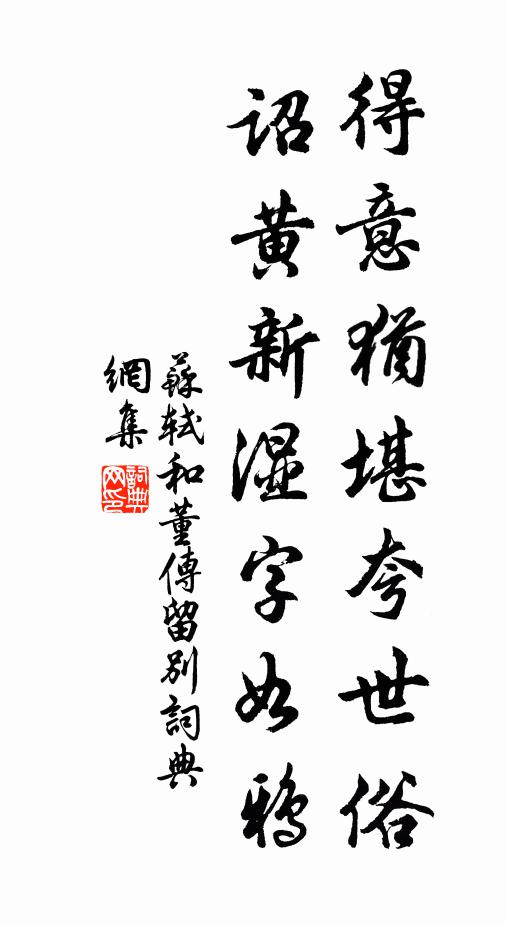 得意猶堪夸世俗
詔黃新濕字如鴉
蘇軾和董傳留別詞典
網集
詞典
网印